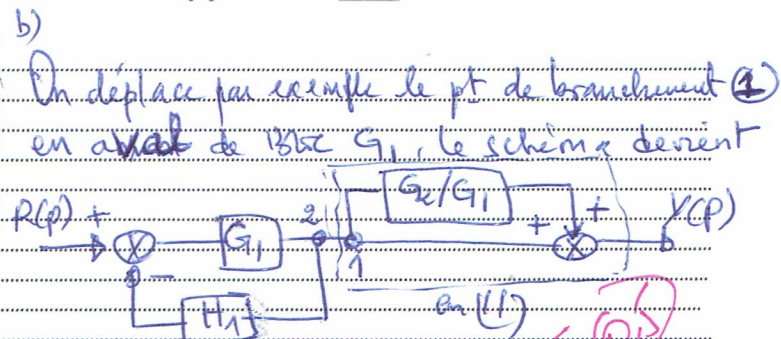 b)
On déplace par exemple le pt de branchement ①
en aval de Bloc G1, le schéma devient
G2/G1
R(p) + G1 2 + + Y(p)
- 1
H1 en (//)